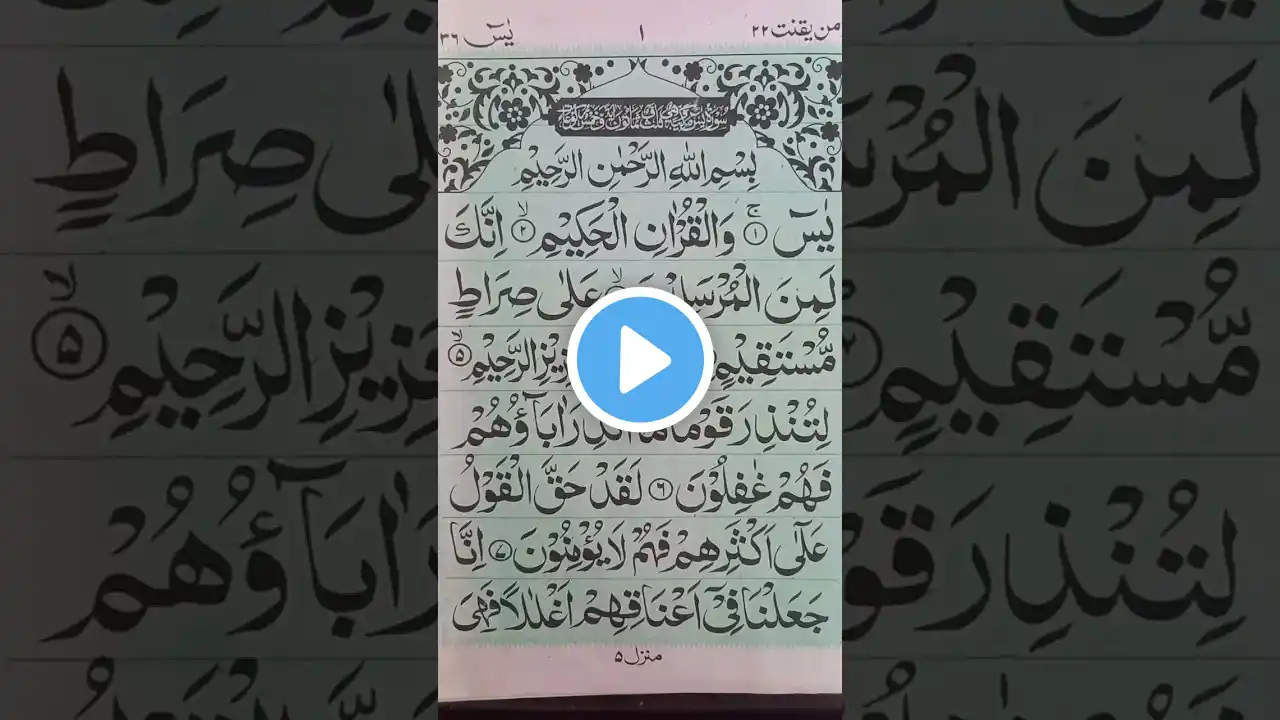 من يقنت ٢٢
١
يٰسٓ ٣٦
بِسْمِ اللّٰهِ الرَّحْمٰنِ الرَّحِيْمِ
يٰسٓ ۚ ١ وَالْقُرْاٰنِ الْحَكِيْمِ ۙ ٢ اِنَّكَ
لَمِنَ الْمُرْسَلِيْنَ ۙ عَلٰى صِرَاطٍ
مُّسْتَقِيْمٍ الْعَزِيْزِ الرَّحِيْمِ ۙ ٥
لِتُنْذِرَ قَوْمًا مَّاۤ اُنْذِرَ اٰبَآؤُهُمْ
فَهُمْ غٰفِلُوْنَ ٦ لَقَدْ حَقَّ الْقَوْلُ
عَلٰٓى اَكْثَرِهِمْ فَهُمْ لَا يُؤْمِنُوْنَ ٧ اِنَّا
جَعَلْنَا فِيْٓ اَعْنَاقِهِمْ اَغْلٰلًا فَهِيَ
منزل ٥